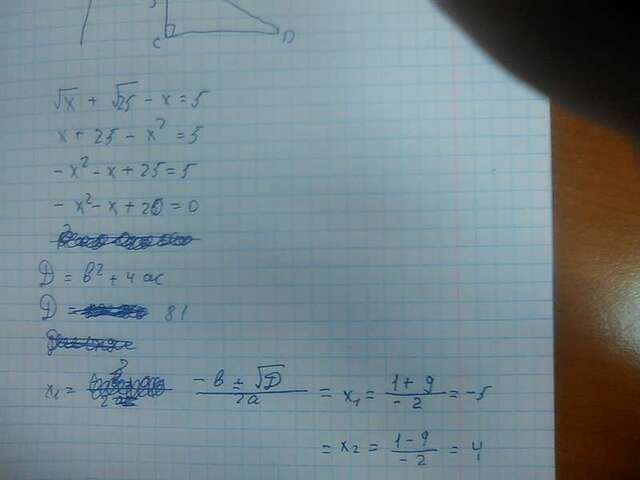 C D
√x + √25 - x = 5
x + 25 - x² = 5
-x² - x + 25 = 5
-x² - x + 20 = 0
D = b² + 4ac
D = 81
x₁ = -b ± √D / 2a = x₁ = 1 + 9 / -2 = -5
= x₂ = 1 - 9 / -2 = 4